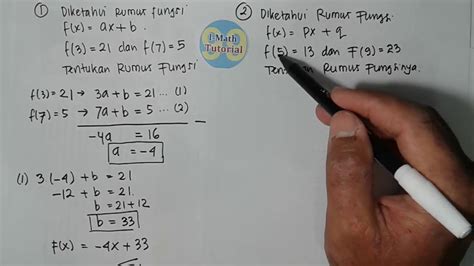 ① Diketahui Rumus fungsi
f(x) = ax + b.
f(3) = 21 dan f(7) = 5
Tentukan Rumus Fungsi.
f(3) = 21 → 3a + b = 21 ... (1)
f(7) = 5 → 7a + b = 5 ... (2)
-4a = 16
a = -4
(1) 3(-4) + b = 21
-12 + b = 21.
b = 21 + 12
b = 33
F(x) = -4x + 33
1 Math
Tutorial
② Diketahui Rumus Fungsi
f(x) = px + q
f(5) = 13 dan F(9) = 23
Rumus Fungsinya.